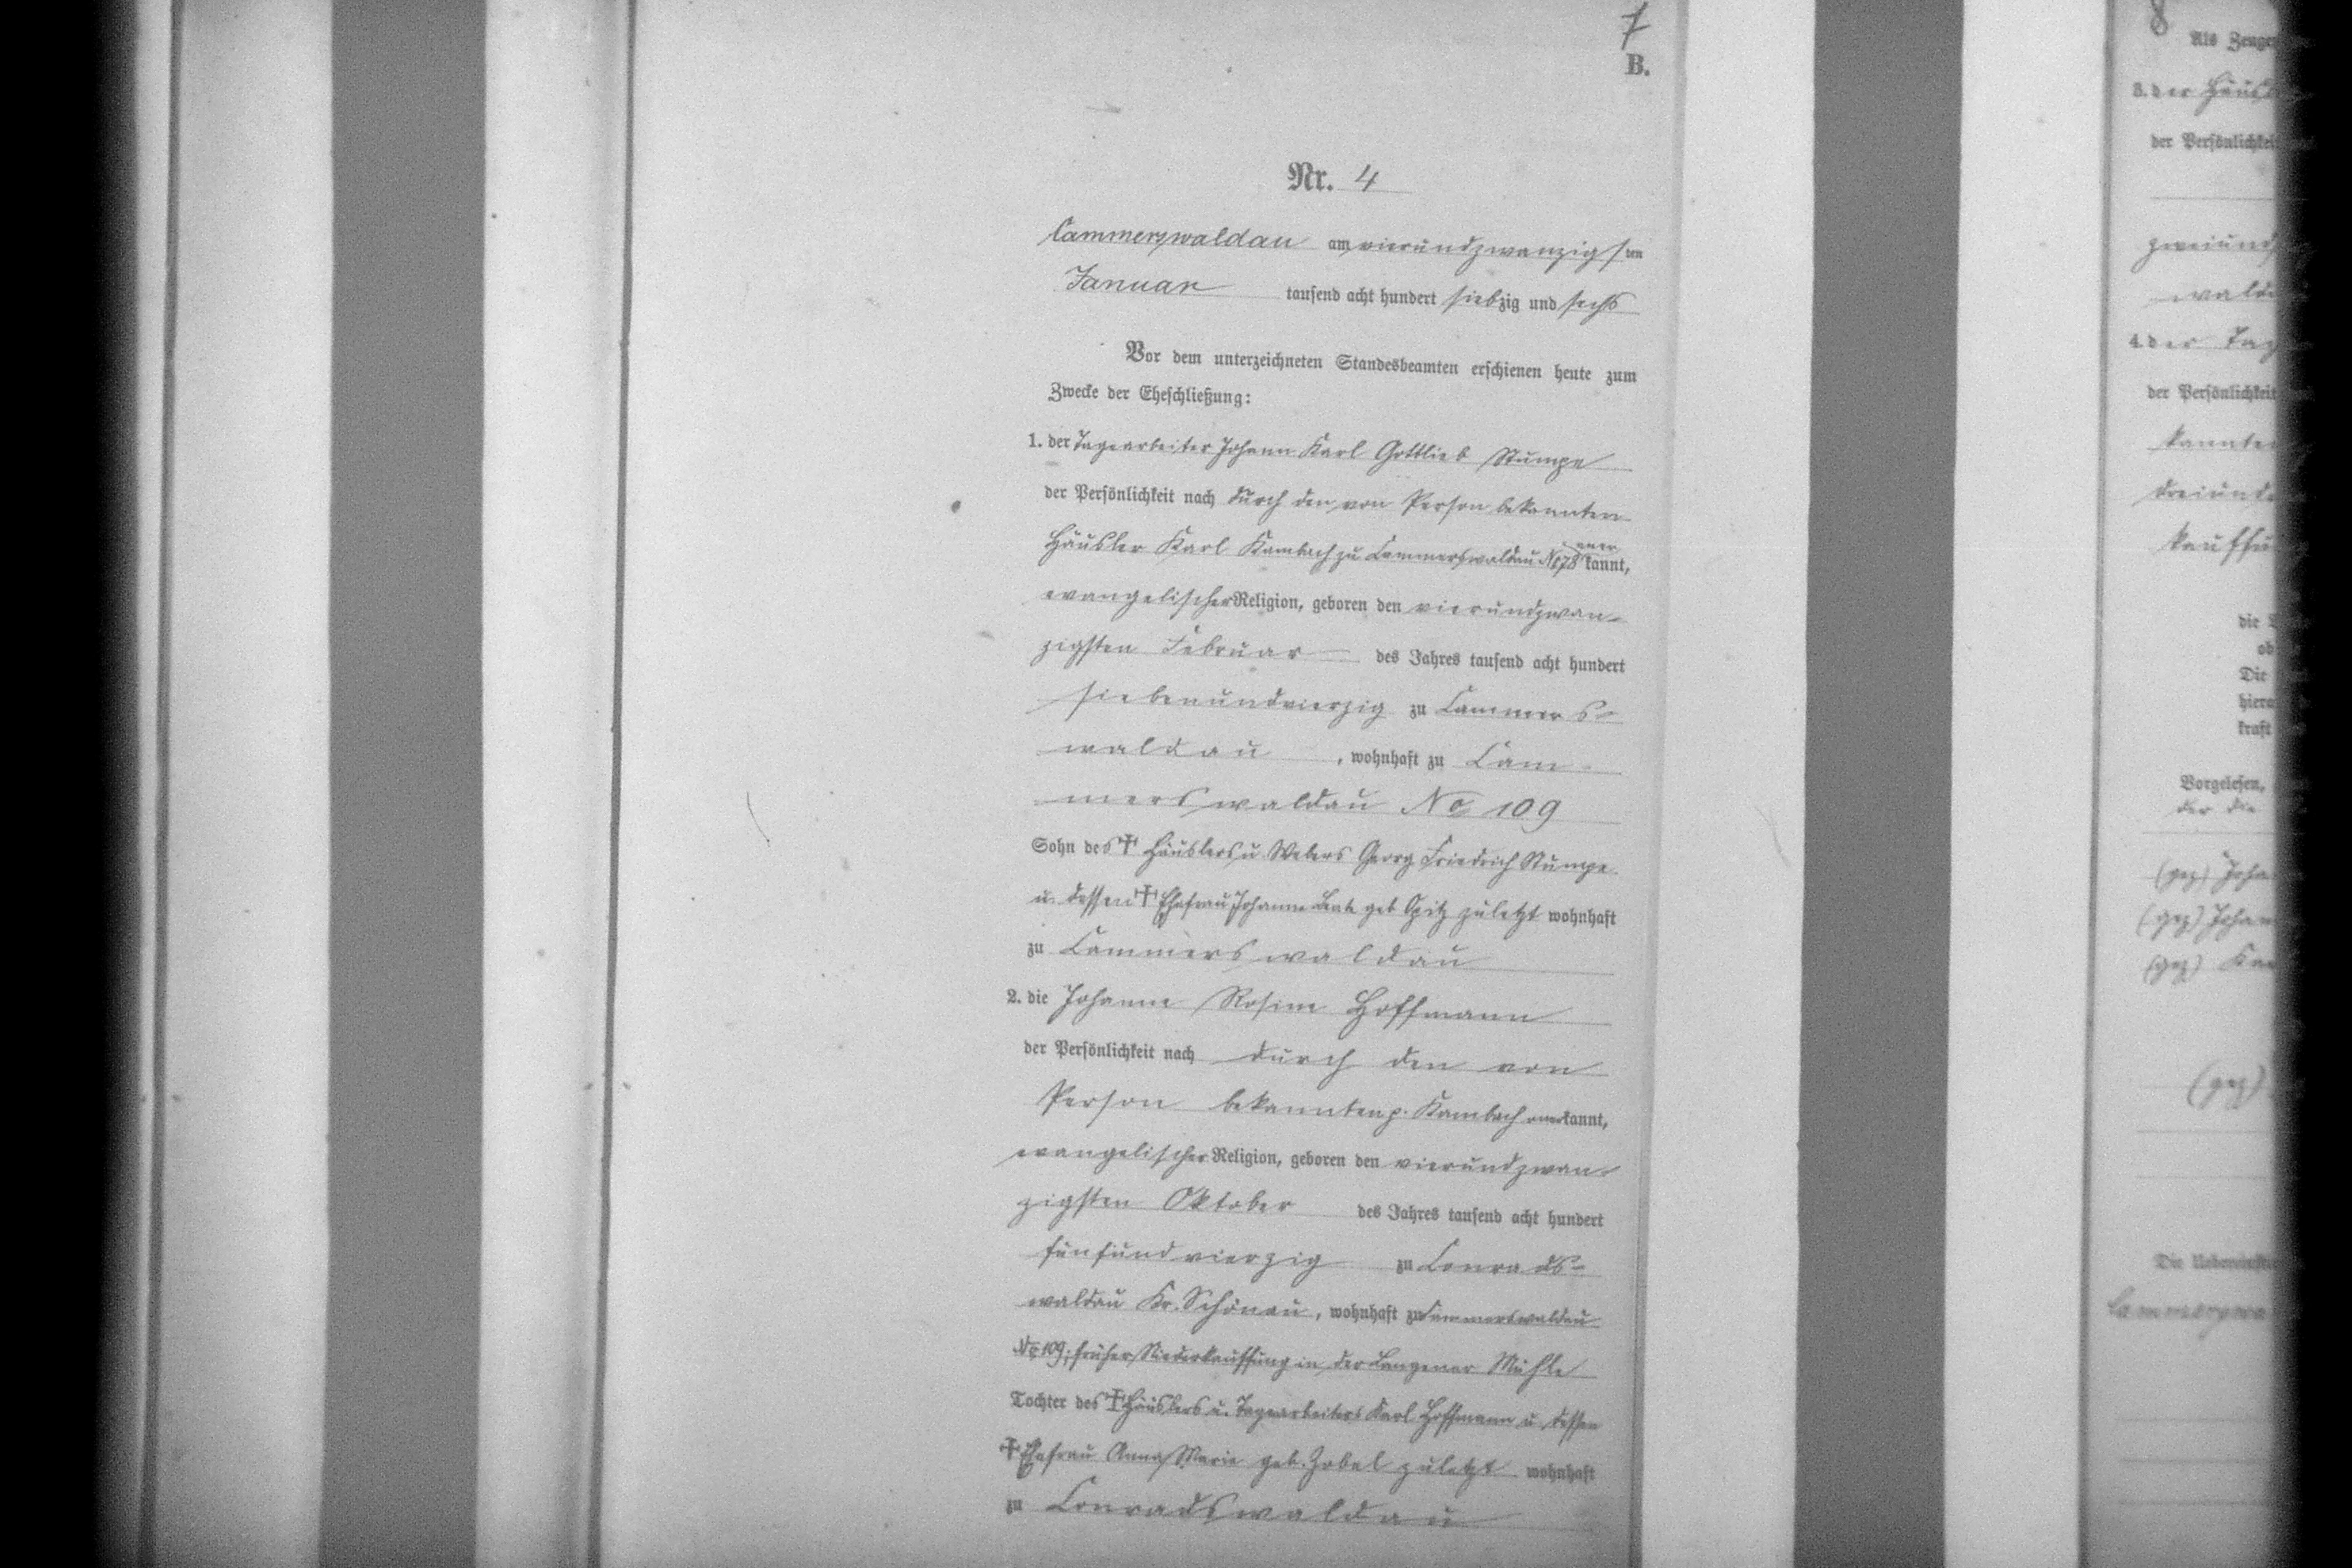 7
B.
Nr. 4
Cammerswaldau am vierundzwanzigsten
Januar tausend acht hundert siebzig und sechs
Vor dem unterzeichneten Standesbeamten erschienen heute zum
Zwecke der Eheschließung:
1. der Tagearbeiter Johann Karl Gottlieb Stumpe
der Persönlichkeit nach durch den von Person bekannten
Häusler Karl Kambach zu Cammerswaldau No 78 anerkannt,
evangelischer Religion, geboren den vierundzwan-
zigsten Februar des Jahres tausend acht hundert
siebenundvierzig zu Cammers-
waldau, wohnhaft zu Cam-
merswaldau No 109
Sohn des † Häuslers u Webers Georg Friedrich Stumpe
u. dessen † Ehefrau Johanne Beate geb Opitz zuletzt wohnhaft
zu Cammerswaldau
2. die Johanne Rosine Hoffmann
der Persönlichkeit nach durch den von
Person bekannten p. Kambach anerkannt,
evangelischer Religion, geboren den vierundzwan-
zigsten Oktober des Jahres tausend acht hundert
fünfundvierzig zu Conrads-
waldau Kr. Schönau, wohnhaft zu Cammerswaldau
No 109, früher Niederkauffung in der Mühle
Tochter des † Häuslers u. Tagearbeiters Karl Hoffmann u. dessen
† Ehefrau Anna Marie geb. Zobel zuletzt wohnhaft
zu Conradswaldau
8
Als Zeugen
3. der
der Persönlichkeit
4. der
der Persönlichkeit
die
Die
kraft
Vorgelesen,
der die
(gez)
(gez)
(gez)
(gez)
Die